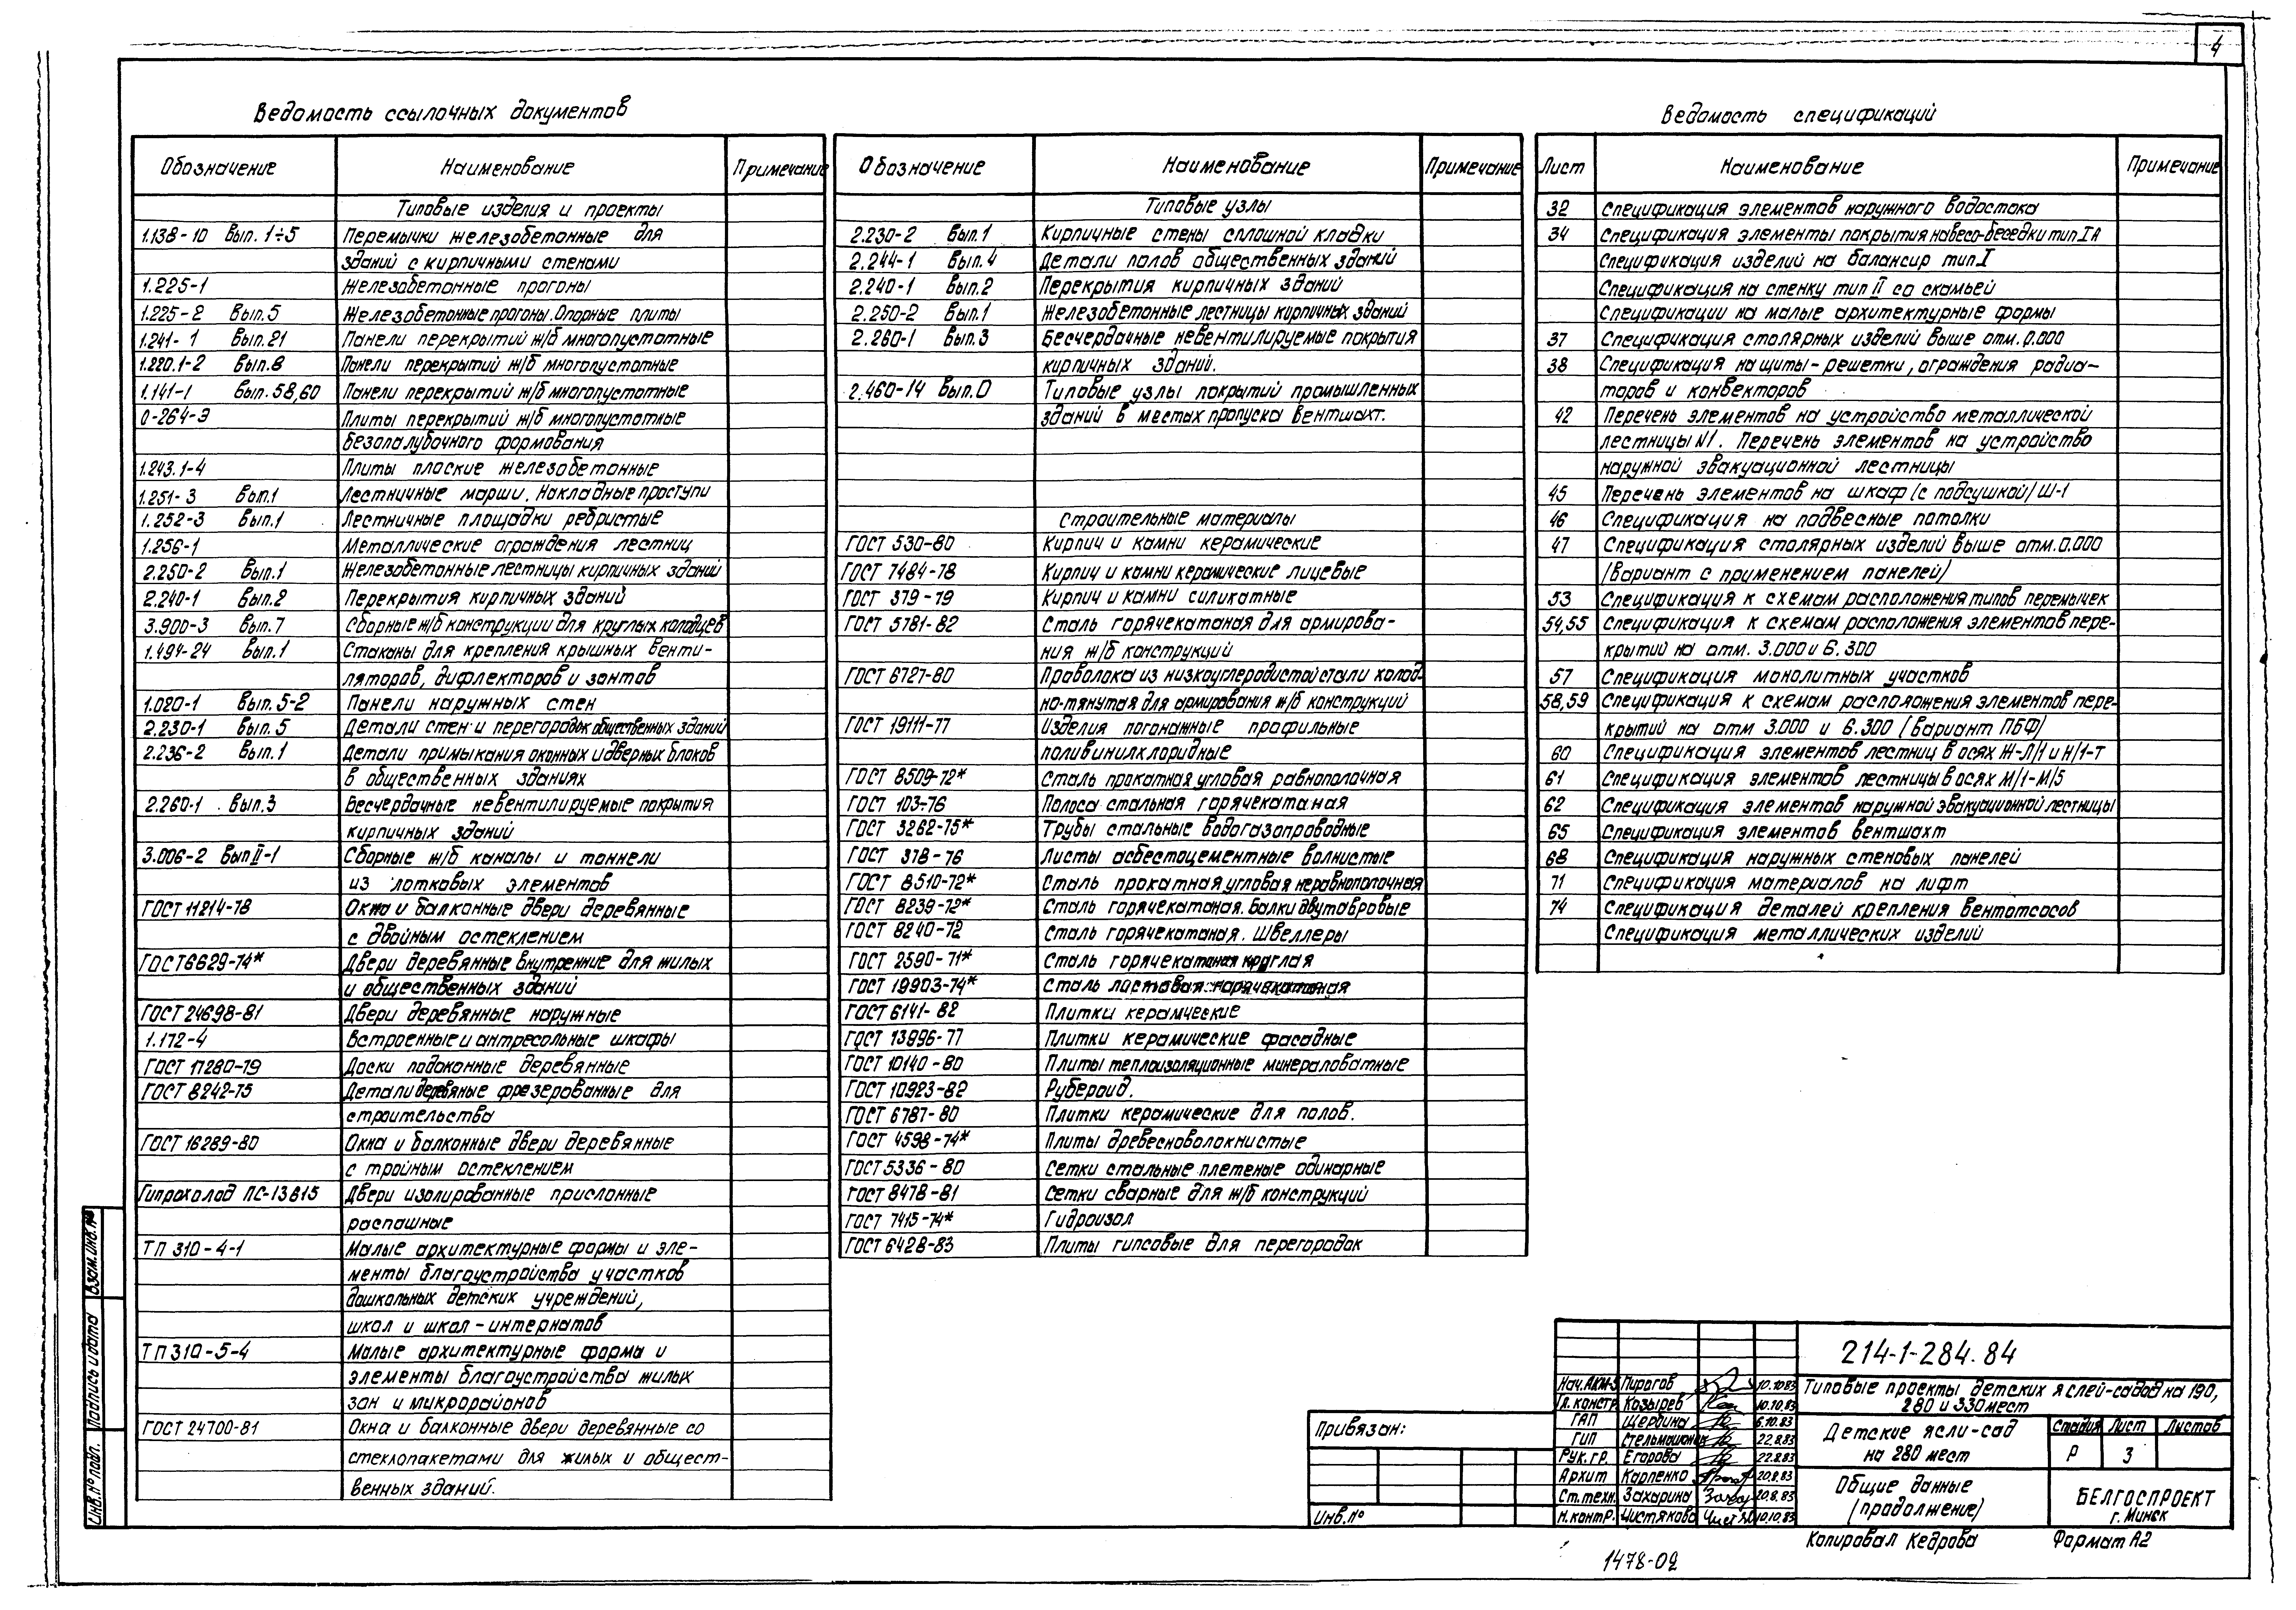 4
Ведомость ссылочных документов
Обозначение Наименование Примечание
Типовые изделия и проекты
1.138-10 Вып. 1÷5 Перемычки железобетонные для
зданий с кирпичными стенами
1.225-1 Железобетонные прогоны
1.225-2 Вып.5 Железобетонные прогоны. Опорные плиты
1.241-1 Вып.21 Панели перекрытий ж/б многопустотные
1.220.1-2 Вып.8 Панели перекрытий ж/б многопустотные
1.141-1 Вып.58,60 Панели перекрытий ж/б многопустотные
0-264-Э Плиты перекрытий ж/б многопустотные
безопалубочного формования
1.243.1-4 Плиты плоские железобетонные
1.251-3 Вып.1 Лестничные марши. Накладные проступи
1.252-3 Вып.1 Лестничные площадки ребристые
1.256-1 Металлические ограждения лестниц
2.250-2 Вып.1 Железобетонные лестницы кирпичных зданий
2.240-1 Вып.2 Перекрытия кирпичных зданий
3.900-3 Вып.7 Сборные ж/б конструкции для круглых колодцев
1.494-24 Вып.1 Стаканы для крепления крышных венти-
ляторов, дифлекторов и зонтов
1.020-1 Вып.5-2 Панели наружных стен
2.230-1 Вып.5 Детали стен и перегородок общественных зданий
2.236-2 Вып.1 Детали примыкания оконных и дверных блоков
в общественных зданиях
2.260-1 Вып.3 Бесчердачные невентилируемые покрытия
кирпичных зданий
3.006-2 Вып II-1 Сборные ж/б каналы и тоннели
из лотковых элементов
ГОСТ 11214-78 Окна и балконные двери деревянные
с двойным остеклением
ГОСТ 6629-74* Двери деревянные внутренние для жилых
и общественных зданий
ГОСТ 24698-81 Двери деревянные наружные
1.172-4 Встроенные и антресольные шкафы
ГОСТ 17280-79 Доски подоконные деревянные
ГОСТ 8242-75 Детали деревяные фрезерованные для
строительства
ГОСТ 16289-80 Окна и балконные двери деревянные
с тройным остеклением
Гипрохолод ПС-13615 Двери изолированные прислонные
распашные
ТП 310-4-1 Малые архитектурные формы и эле-
менты благоустройства участков
дошкольных детских учреждений,
школ и школ-интернатов
ТП 310-5-4 Малые архитектурные форма и
элементы благоустройства жилых
зон и микрорайонов
ГОСТ 24700-81 Окна и балконные двери деревянные со
стеклопакетами для жилых и общест-
венных зданий.
Обозначение Наименование Примечание
Типовые узлы
2.230-2 Вып.1 Кирпичные стены сплошной кладки
2.244-1 Вып.4 Детали полов общественных зданий
2.240-1 Вып.2 Перекрытия кирпичных зданий
2.250-2 Вып.1 Железобетонные лестницы кирпичных зданий
2.260-1 Вып.3 Бесчердачные невентилируемые покрытия
кирпичных зданий.
2.460-14 Вып.0 Типовые узлы покрытий промышленных
зданий в местах пропуска вентшахт.
Строительные материалы
ГОСТ 530-80 Кирпич и камни керамические
ГОСТ 7484-78 Кирпич и камни керамические лицевые
ГОСТ 379-79 Кирпич и камни силикатные
ГОСТ 5781-82 Сталь горячекатаная для армирова-
ния ж/б конструкций
ГОСТ 6727-80 Проволока из низкоуглеродистой стали холод-
но-тянутая для армирования ж/б конструкций
ГОСТ 19111-77 Изделия погонажные профильные
поливинилхлоридные
ГОСТ 8509-72* Сталь прокатная угловая равнополочная
ГОСТ 103-76 Полоса стальная горячекатаная
ГОСТ 3262-75* Трубы стальные водогазопроводные
ГОСТ 378-76 Листы асбестоцементные волнистые
ГОСТ 8510-72* Сталь прокатная угловая неравнополочная
ГОСТ 8239-72* Сталь горячекатаная. Балки двутавровые
ГОСТ 8240-72 Сталь горячекатаная. Швеллеры
ГОСТ 2590-71* Сталь горячекатаная круглая
ГОСТ 19903-74* Сталь листовая горячекатаная
ГОСТ 6141-82 Плитки керамические
ГОСТ 13996-77 Плитки керамические фасадные
ГОСТ 10140-80 Плиты теплоизоляционные минераловатные
ГОСТ 10923-82 Рубероид.
ГОСТ 6787-80 Плитки керамические для полов.
ГОСТ 4598-74* Плиты древесноволокнистые
ГОСТ 5336-80 Сетки стальные плетеные одинарные
ГОСТ 8478-81 Сетки сварные для ж/б конструкций
ГОСТ 7415-74* Гидроизол
ГОСТ 6428-83 Плиты гипсовые для перегородок
Ведомость спецификаций
Лист Наименование Примечание
32 Спецификация элементов наружного водостока
34 Спецификация элементы покрытия навеса-беседки тип.IА
Спецификация изделий на балансир тип.I
Спецификация на стенку тип II со скамьей
Спецификации на малые архитектурные формы
37 Спецификация столярных изделий выше отм. 0.000
38 Спецификация на щиты-решетки, ограждения радиа-
торов и конвекторов
42 Перечень элементов на устройство металлической
лестницы N1. Перечень элементов на устройство
наружной эвакуационной лестницы
45 Перечень элементов на шкаф (с подсушкой) Ш-1
46 Спецификация на подвесные потолки
47 Спецификация столярных изделий выше отм. 0.000
(вариант с применением панелей)
53 Спецификация к схемам расположения типов перемычек
54,55 Спецификация к схемам расположения элементов пере-
крытий на отм. 3.000 и 6.300
57 Спецификация монолитных участков
58,59 Спецификация к схемам расположения элементов пере-
крытий на отм 3.000 и 6.300 (вариант ПБФ)
60 Спецификация элементов лестниц в осях Ж-Л/1 и Н/1-Т
61 Спецификация элементов лестницы в осях М/1-М/5
62 Спецификация элементов наружной эвакуационной лестницы
65 Спецификация элементов вентшахт
68 Спецификация наружных стеновых панелей
71 Спецификация материалов на лифт
74 Спецификация деталей крепления вентотсосов
Спецификация металлических изделий
Взам.инв.№
Подпись и дата
Инв.№ подл.
Привязан:
Инв.№
214-1-284.84
Нач.АКМ-5 Пирогов 10.10.83
Гл.констр. Козырев 10.10.83
ГАП Щербина 6.10.83
ГИП Стельмашонок 22.8.83
Рук.гр. Егорова 22.8.83
Архит Карпенко 20.8.83
Ст.техн. Захарина 20.8.83
Н.контр. Чистякова 10.10.83
Типовые проекты детских яслей-садов на 190,
280 и 330 мест
Детские ясли-сад
на 280 мест
Стадия Лист Листов
Р 3
Общие данные
(продолжение)
БЕЛГОСПРОЕКТ
г. Минск
Копировал Кедрова Формат А2
1478-02